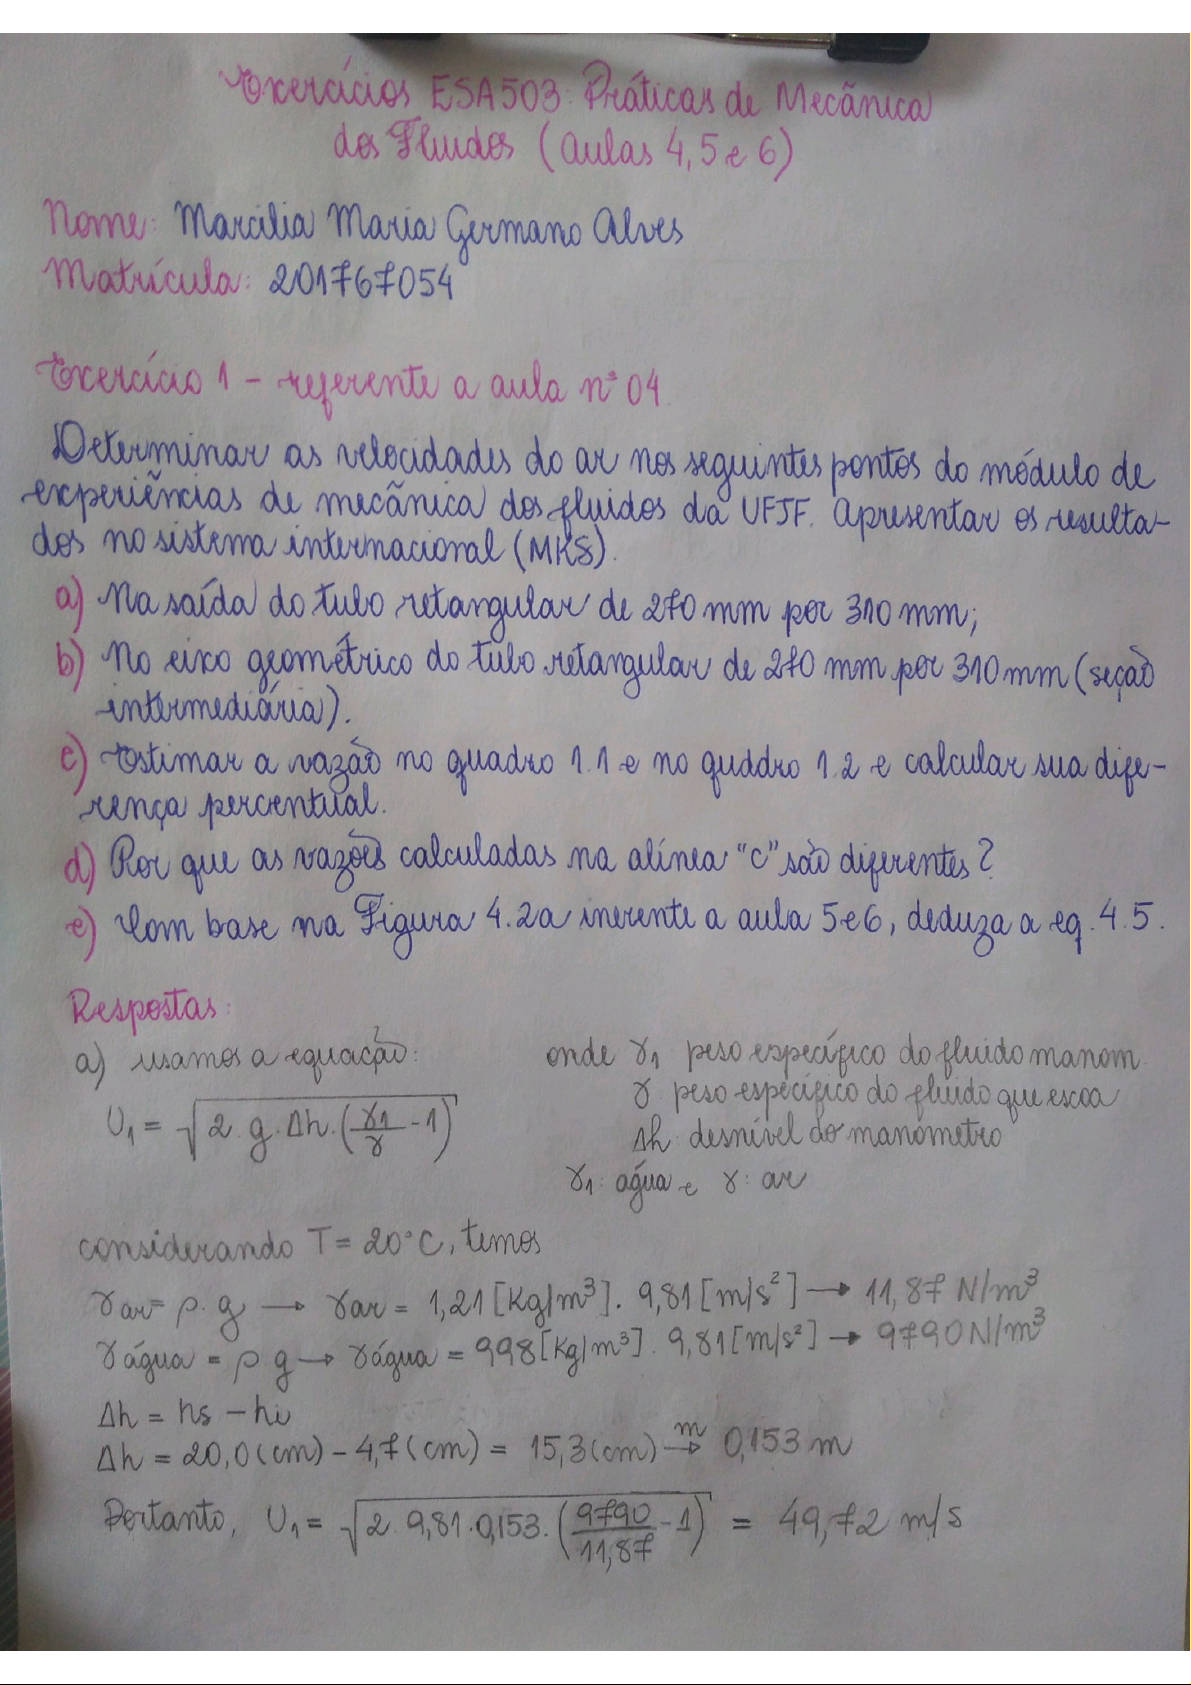 Exercícios ESA503: Práticas de Mecânica
dos Fluidos (Aulas 4, 5 e 6)
Nome: Marcilia Maria Germano Alves
Matrícula: 201767054
Exercício 1 - referente a aula n° 04.
Determinar as velocidades do ar nos seguintes pontos do módulo de
experiências de mecânica dos fluidos da UFJF. Apresentar os resulta-
dos no sistema internacional (MKS).
a) Na saída do tubo retangular de 270 mm por 310 mm;
b) No eixo geométrico do tubo retangular de 270 mm por 310 mm (seção
intermediária).
c) Estimar a vazão no quadro 1.1 e no quddro 1.2 e calcular sua dife-
rença percentual.
d) Por que as vazões calculadas na alínea "c" são diferentes?
e) Com base na Figura 4.2a inerente a aula 5 e 6, deduza a eq. 4.5.
Respostas:
a) usamos a equação: onde γ1: peso específico do fluido manom.
γ: peso específico do fluido que escoa
U1 = √2.g.Δh.(γ1/γ - 1) Δh: desnível do manômetro
γ1: água e γ: ar
considerando T = 20°C, temos
γar = ρ.g → γar = 1,21 [Kg/m³]. 9,81 [m/s²] → 11,87 N/m³
γágua = ρ.g → γágua = 998 [Kg/m³]. 9,81 [m/s²] → 9790 N/m³
Δh = hs - hi
Δh = 20,0 (cm) - 4,7 (cm) = 15,3 (cm) m→ 0,153 m
Portanto, U1 = √2.9,81.0,153.(9790/11,87 - 1) = 49,72 m/s